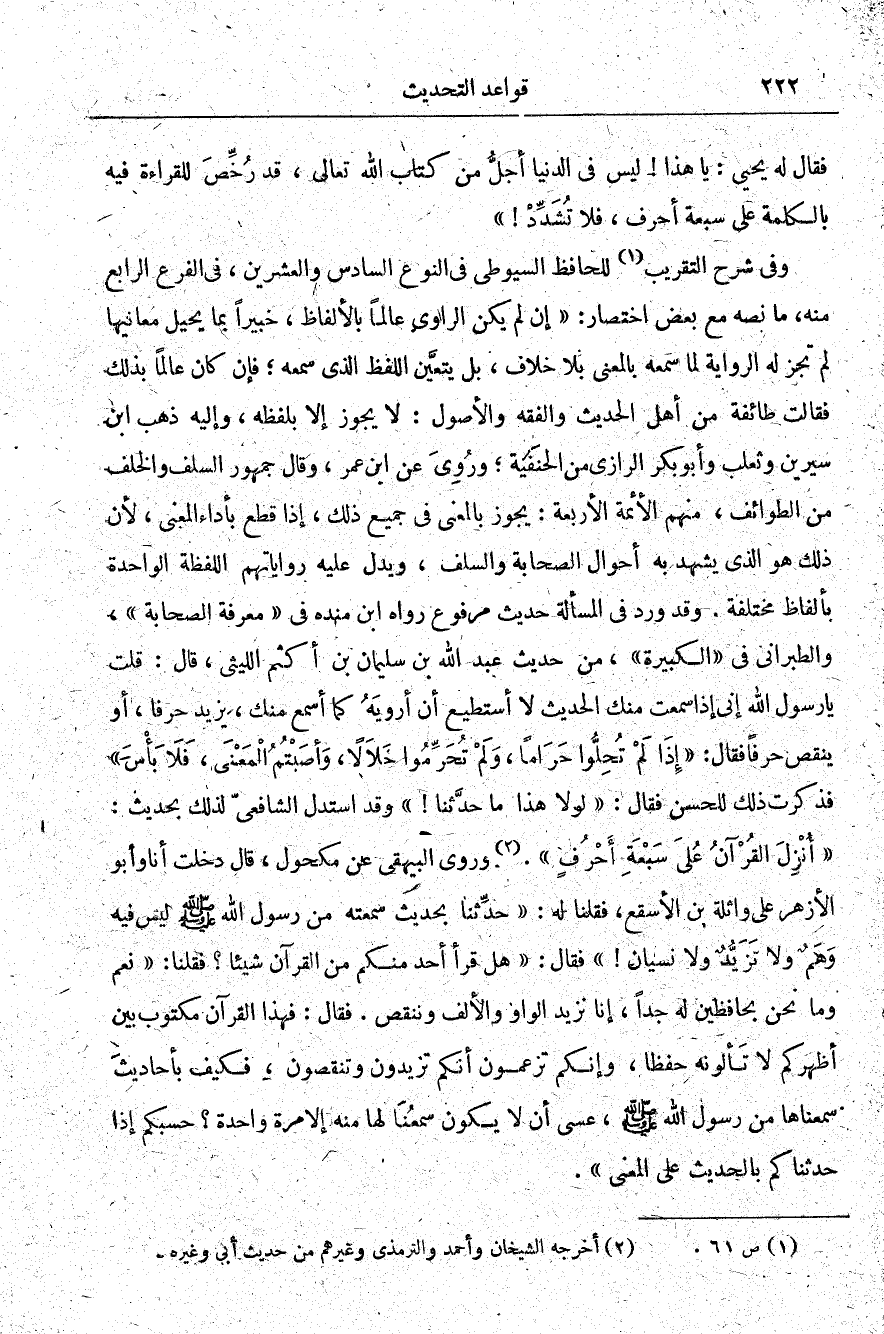 ٢٢٢ قواعد التحديث
فقال له يحيي : يا هذا ! ليس فى الدنيا أجلُّ من كتاب الله تعالى ، قد رُخِّصَ للقراءة فيه
بالكلمة على سبعة أحرف ، فلا تُشَدِّدْ ! »
وفى شرح التقريب(١) للحافظ السيوطى فى النوع السادس والعشرين ، فى الفرع الرابع
منه، ما نصه مع بعض اختصار: « إن لم يكن الراوى عالماً بالألفاظ ، خبيراً بما يحيل معانيها
لم تجز له الرواية لما سمعه بالمعنى بلا خلاف ، بل يتعيَّن اللفظ الذى سمعه ؛ فإن كان عالماً بذلك
فقالت طائفة من أهل الحديث والفقه والأصول : لا يجوز إلا بلفظه ، وإليه ذهب ابن
سيرين وثعلب وأبو بكر الرازى من الحنفية ؛ ورُوِىَ عن ابن عمر ، وقال جمهور السلف والخلف
من الطوائف ، منهم الأئمة الأربعة : يجوز بالمعنى فى جميع ذلك ، إذا قطع بأداء المعنى ، لأن
ذلك هو الذى يشهد به أحوال الصحابة والسلف ، ويدل عليه رواياتهم اللفظة الواحدة
بألفاظ مختلفة . وقد ورد فى المسألة حديث مرفوع رواه ابن منده فى « معرفة الصحابة » ،
والطبرانى فى «الكبيرة» ، من حديث عبد الله بن سليمان بن أكثم الليثى ، قال : قلت
يا رسول الله إنى إذا سمعت منك الحديث لا أستطيع أن أرويَهُ كما أسمع منك ، يزيد حرفا ، أو
ينقص حرفاً فقال: « إِذَا لَمْ تُحِلُّوا حَرَاماً ، وَلَمْ تُحَرِّمُوا حَلَالًا، وَأَصَبْتُمُ الْمَعْنَى ، فَلَا بَأْسَ»
فذكرت ذلك للحسن فقال : « لولا هذا ما حدَّثنا ! » وقد استدل الشافعىّ لذلك بحديث :
« أُنْزِلَ القُرْآنُ عَلَى سَبْعَةِ أَحْرُفٍ » .(٢) وروى البيهقى عن مكحول ، قال دخلت أنا وأبو
الأزهر على واثلة بن الأسقع، فقلنا له : « حدِّثنا بحديث سمعته من رسول الله ﷺ ليس فيه
وَهَمٌ ولا تَزَيُّدٌ ولا نسيان ! » فقال : « هل قرأ أحد منكم من القرآن شيئا ؟ فقلنا: « نعم
وما نحن بحافظين له جداً ، إنا نزيد الواو والألف وننقص . فقال : فهذا القرآن مكتوب بين
أظهركم لا تألونه حفظا ، وإنكم تزعمون أنكم تزيدون وتنقصون ، فكيف بأحاديثَ
سمعناها من رسول الله ﷺ ، عسى أن لا يكون سمعُنَا لها منه إلا مرة واحدة ؟ حسبكم إذا
حدثناكم بالحديث على المعنى » .
(١) ص ٦١ . (٢) أخرجه الشيخان وأحمد والترمذى وغيرهم من حديث أبي وغيره -